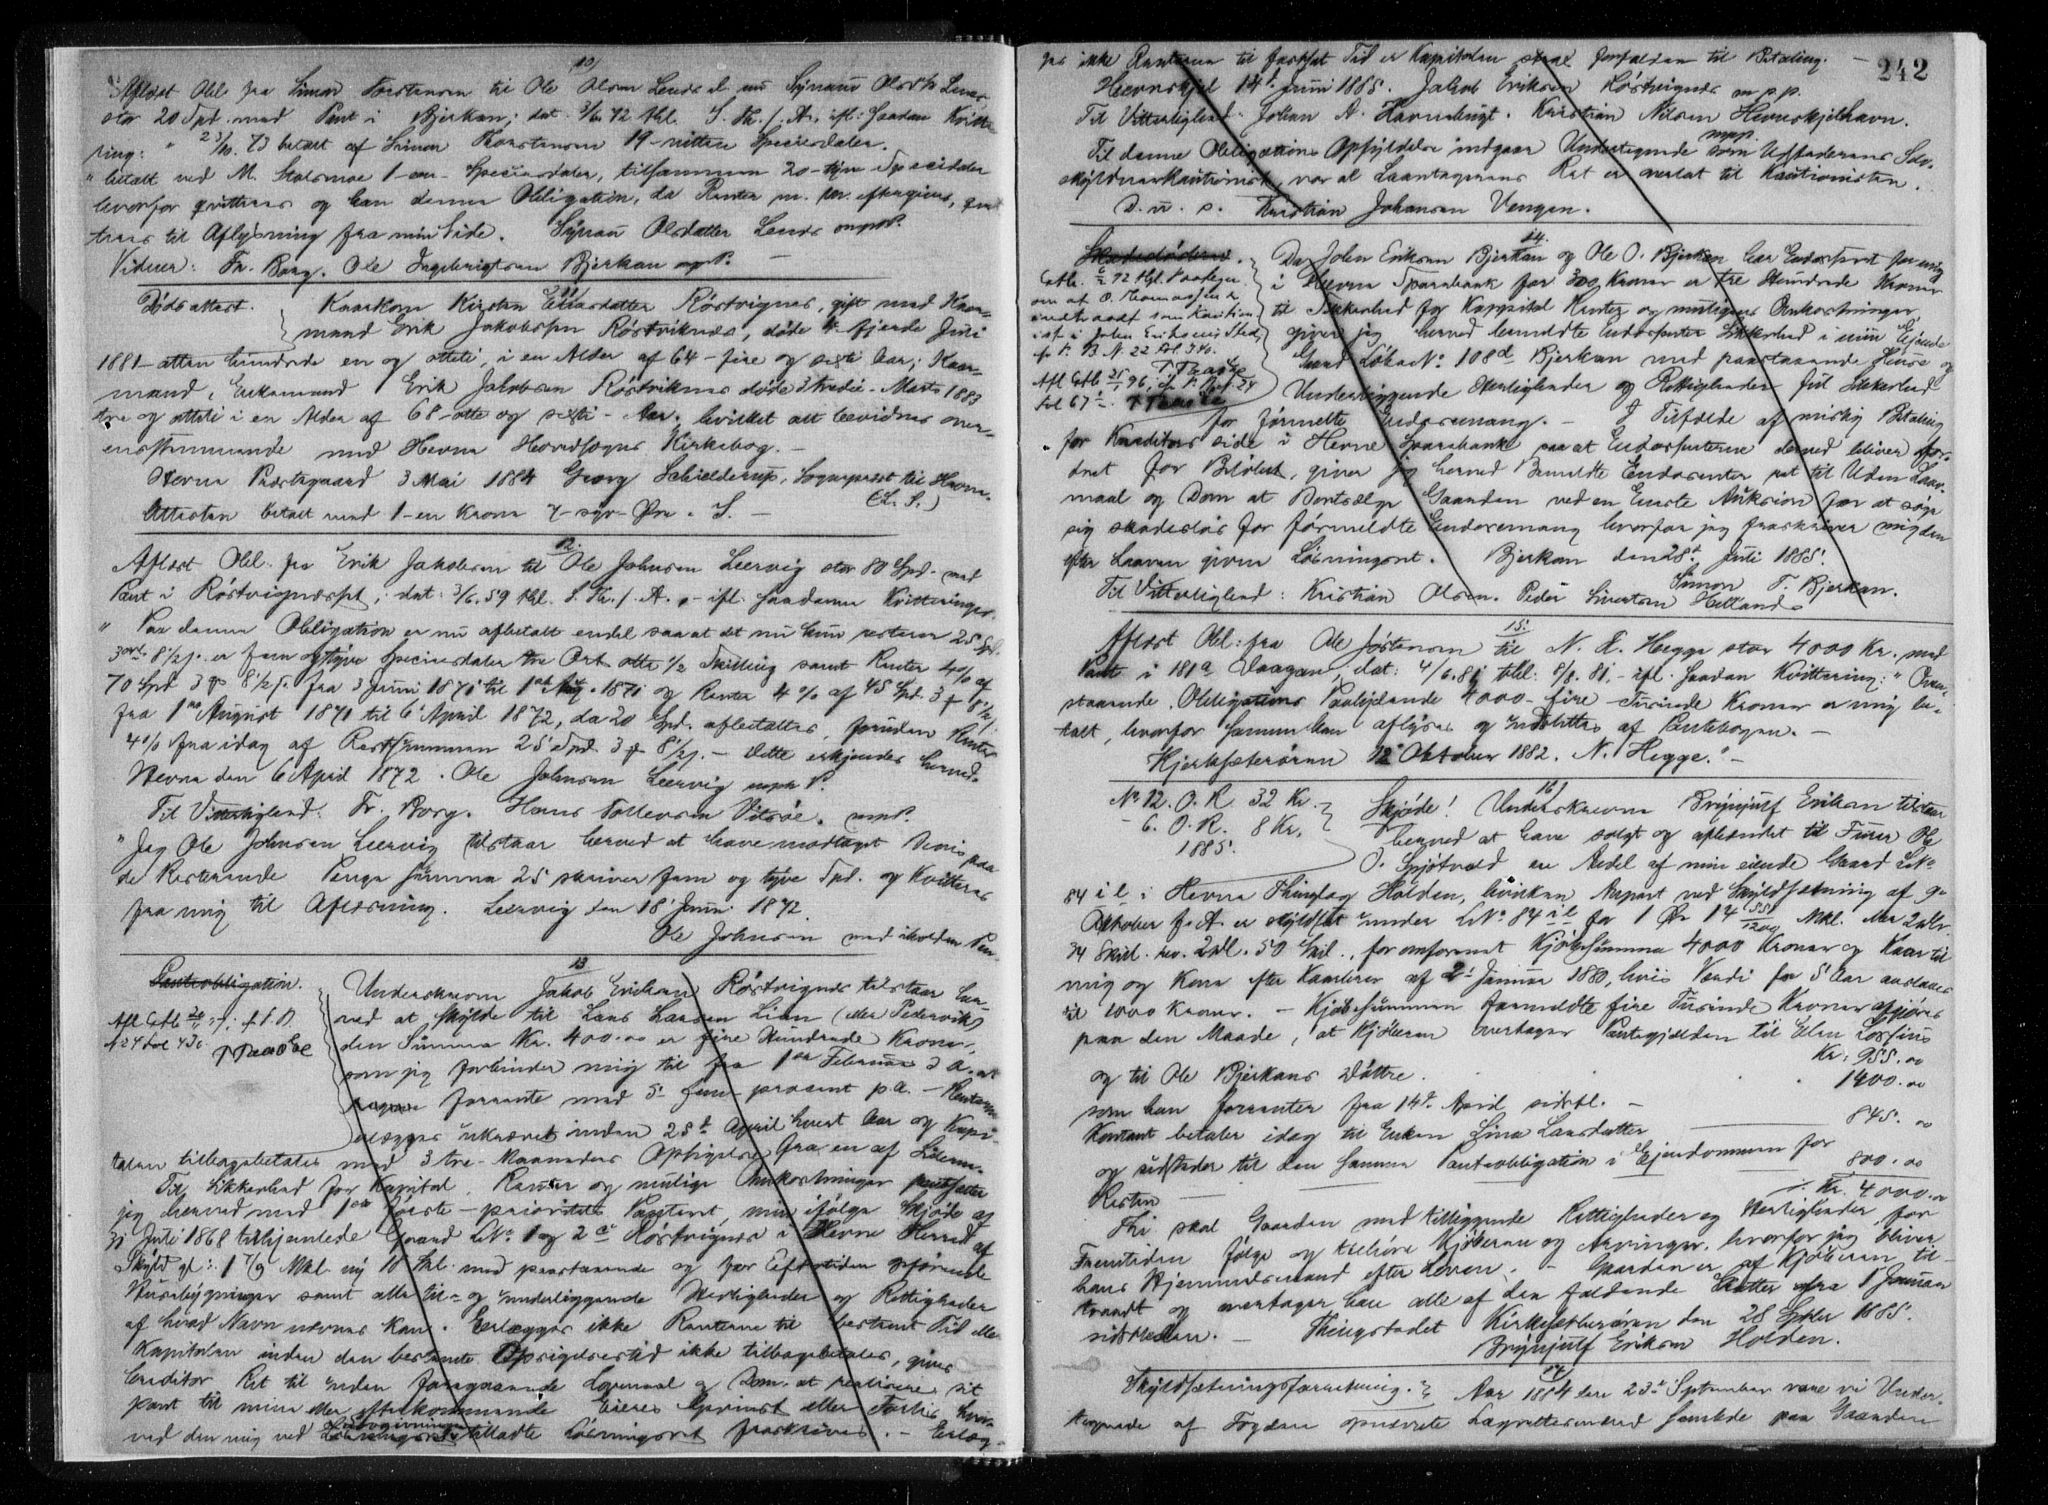 10
Aflæst Obl. fra Simon Torstensen til Ole Olsen Lends l. nu Synnau Olsdt. Lends
stor 20 Spd. med Pant i Bjerkan; dat. 3/6 72 thl. S. Th. f. A., ifl: saadan Kvitte-
ring: " 23/10. 73 betalt af Simon Thorstensen 19-nitten Speciedaler.
" betalt ved M. Stolsmoe 1-een-Speciedaler, tilsammen 20-tyve Speciedaler
hvorfor qvitteres og kan denne Obligation, da Renter m. m. eftergives,
teres til Aflysning fra min Side. Synnau Olsdatter Lends mpP.
Vidner: Fr. Borg. Ole Ingebrigtsen Bjerkan mpP. —
11
Dødsattest. Kaarkone Kirsten Einarsdatter Røstvignes, gift med Kaar-
mand Erik Jakobsen Røstviknes, døde 4-fjerde Juni
1881-atten hundrede en og otteti, i en Alder af 64-fire og sexti Aar; Kaar-
mand, Enkemand Erik Jakobsen Røstviknes døde 3 tredie-Marts 1883
tre og otteti i en Alder af 68-otte og sexti-Aar, hvilket alt bevidnes over-
ensstemmende med Hevne Hovedsogns Kirkebog.—
Hevne Præstegaard 3 Mai 1884 Georg Schielderup, Sogneprest til Hevne.
(L. S.)
Attesten betalt med 1-en Krone 7-syv-Øre. S. —
12.
Aflæst Obl. fra Erik Jakobsen til Ole Johnsen Leervig stor 80 Spd. med
Pant i Røstvignæsset; dat: 3/6. 59 thl. S. Th. f. A. - ifl. saadanne Kvitteringer.
" Paa denne Obligation er nu afbetalt endel saa at det nu kun restere 25 Spd.
3 ort 8 1/2 s. er fem og tyve Speciedaler tre Ort otte 1/2 Skilling samt Renter 4% af
70 Spd 3 8 1/2 s. fra 3 Juni 1871 til 1ste Aug. 1871 og Renter 4% af 45 Spd. 3 8 1/2 s.
fra 1ste August 1871 til 6 April 1872, da 20 Spd. afbetaltes, foruden Renter
4% fra idag af Restsummen 25 Spd. 3 8 1/2 s. — Dette erkjendes herved.
Hevne den 6 April 1872. Ole Johnsen Leervig mpP.
Til Vitterlighed: Fr. Borg. Hans Tollevsen Vitsøe. mpP.
" Jeg Ole Johnsen Leervig tilstaar herved at have modtaget Denis paa
de Resterende Penge Summa 25 skriver fem og tyve Spd. og Kvitteres
fra mig til Aflesning. Leervig den 18 Juni 1872.
Ole Johnsen med iholden Pen.
13
Pantobligation. Underskreven Jakob Eriksen Røstvignes tilstaar her-
ved at skylde til Lars Larsen Lian (eller Pedervik)
den Summa Kr. 400.00 er fire Hundrede Kroner,
som jeg forbinder mig til fra 1ste Februar d. A. at
forrente med 5-fem-procent p.a. — Renterne
erlægges ukrævet inden 25de April hvert Aar og Kapi-
talen tilbagebetales med 3 tre-Maaneders Opsigelse fra en af Siderne.
Til Sikkerhed for Kapital, Renter og mulige Omkostninger pantsætter
jeg herved med 1ste første-prioritets Panteret, min ifølge Skjøde af
31 Juli 1868 tilhjemlede Gaard LNo. 1 og 2 a Røstvignes i Hevne Herred af
Skyld gl: 1 7/9 Mkl. ny 10 Skl. med paastaaende og for Eftertiden opførende
Husebygninger samt alle til- og underliggende Herligheder og Rettigheder
af hvad Navn nævnes kan. Erlægges ikke Renterne til bestemt Tid eller
Kapitalen inden den bestemte Opsigelsestid ikke tilbagebetales, gives
Creditor Ret til uden foregaaende Lovmaal og Dom at realisere sit
pant til mine eller efterkommende Eieres Gevinst eller Forlis hvor-
ved den mig ved Lovgivningen tilladte Løsningsret fraskrives. — Erlæg-
242
ges ikke Renterne til fastsat Tid er Kapitalen strax forfalden til Betaling. —
Hevnskjel 14de Juni 1885. Jakob Eriksen Røstvignes m.p.p.
Til Vitterlighed: Johan A. Havnehugt. Kristian Nilsen Hevnskjelhavn.
mpp.
Til denne Obligations Opfyldelse indgaar Undertegnede som Udstederens Selv-
skyldnerkautionist, vor al Laantagerens Ret er overlat til Kautionisten.
D. u. s. Kristian Johansen Vengen.
14.
Skadesløsbrev. Da John Eriksen Bjerkan og Ole O. Bjerkan har Endosseret for mig
i Hevne Sparebank for 300 Kroner er tre Hundrede Kroner
til Sikkerhed for Kappital Renter og muligens Omkostninger
giver jeg herved bemeldte Endossenter Sikkerhed i min Eiende
Gaard Løbe No 108d Bjerkan med paastaaende Huse og
Underliggende Herligheder og Rettigheder ful Sikkerhed
for formelte Endossemang. — I Tilfælde af mislig Betaling
for Kreditors side i Hevne Sparebank saa at Endossenterne derved bliver afor-
dret for Beløbet, giver jeg herved Bemeldte Endossenter ret til Uden Laav-
maal og Dom at Bortsælge Gaarden ved en Eneste Auksion for at søge
sig skadesløs for formeldte Endossemang hvorfor jeg fraskriver mig den
efter Laaven givne Løsningsret. Bjerkan den 28de Juli 1885.
Simon T. Bjerkan.
Til Vitterlighed: Kristian Olsen. Peder Sivertsen Helland.
15.
Aflæst Obl: fra Ole Jostensen til N. E. Hegge stor 4000 Kr. med
Pant i 181a Vaagan; dat: 4/6. 81 thl: 8/8. 81.- ifl. saadan Kvittering: " Oven-
staaende Obligations Paalydende 4000-fire-Tusinde Kroner er mig be-
talt, hvorfor Samme kan aflyses og udslettes af Pantebogen. —
Hjerksæterøren 12 Oktober 1882. N. Hegge." —
16
No 12. O. R. 32 Kr.
- 6. O. R. 8 Kr.
1885.
Skjøde! Underskreven Brynjulf Eriksen tilstaar
herved at have solgt og afhændet til Furer Ole
O. Spjøtvold en Andel af min eiende Gaard LNo
84 i l i Hevne Thinglag Holden, hvilken Anpart ved Skyldsætning af 9de
Oktober f. A. er skyldsat under LNo 84 i l for 1 Øre 14 551/1200 Mkl. eller 2 Dlr.
34 Skil. rev. 2 Dl. 50 Skil., for omforenet Kjøbesumma 4000 Kroner og Kaar til
mig og Kone efter Kaarbrev af 2de Januar 1880, hvis Værdi for 5 Aar anslaaes
til 1000 Kroner. — Kjøbesummen formeldte fire Tusinde Kroner afgjøres
paa den Maade, at Kjøberen overtager Pantegjælden til Elen Lossius
Kr: 955.00
og til Ole Bjerkans Døttre . . . . 1400.00
som han forrenter fra 14de April sidstl. —
Kontant betaler idag til Enken Lina Larsdatter — 845.00
og udsteder til den samme Panteobligation i Ejendommen for
Resten — — — 800.00
Kr. 4000.00
Thi skal Gaarden med tilliggende Rettigheder og Herligheder for
Fremtiden følge og tilhøre Kjøberen og Arvinger, hvorfor jeg bliver
hans Hjemmelsmand efter Loven. — Gaarden er af Kjøberen til-
traadt og overtager han alle af den faldende Skatter fra 1 Januar
sidstleden. — Thingstedet Kirksæterøren den 28 Septbr 1885.
Brynjulf Eriksen Holden.
17
Skyldsætningsforretning. Aar 1884 den 23de September vare vi Under-
tegnede af Fogden opnævnte Lagrettesmænd samlede paa Gaarden